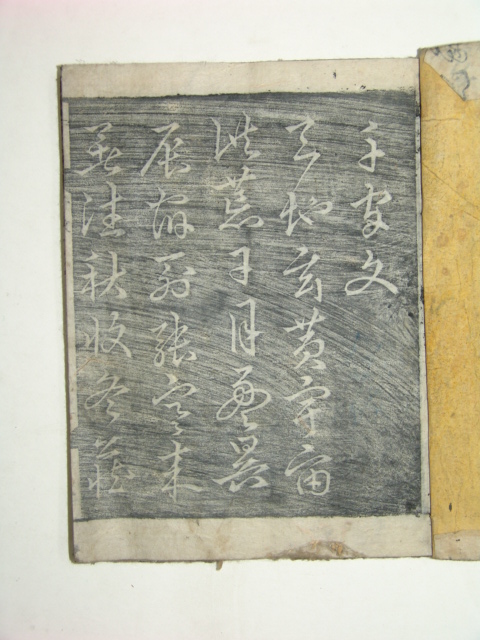 千字文
天地玄黃宇宙
洪荒日月盈昃
辰宿列張寒来
暑往秋收冬藏